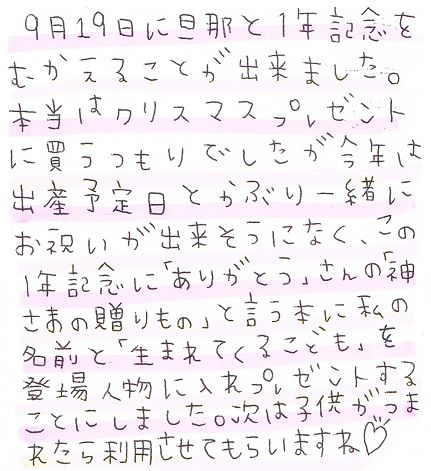 9月19日に旦那と1年記念を
むかえることが出来ました。
本当はクリスマスプレゼント
に買うつもりでしたが今年は
出産予定日とかぶり一緒に
お祝いが出来そうになく、この
1年記念に「ありがとう」さんの「神
さまの贈りもの」と言う本に私の
名前と「生まれてくるこども」を
登場人物に入れプレゼントする
ことにしました。次は子供がうま
れたら利用させてもらいますね♡